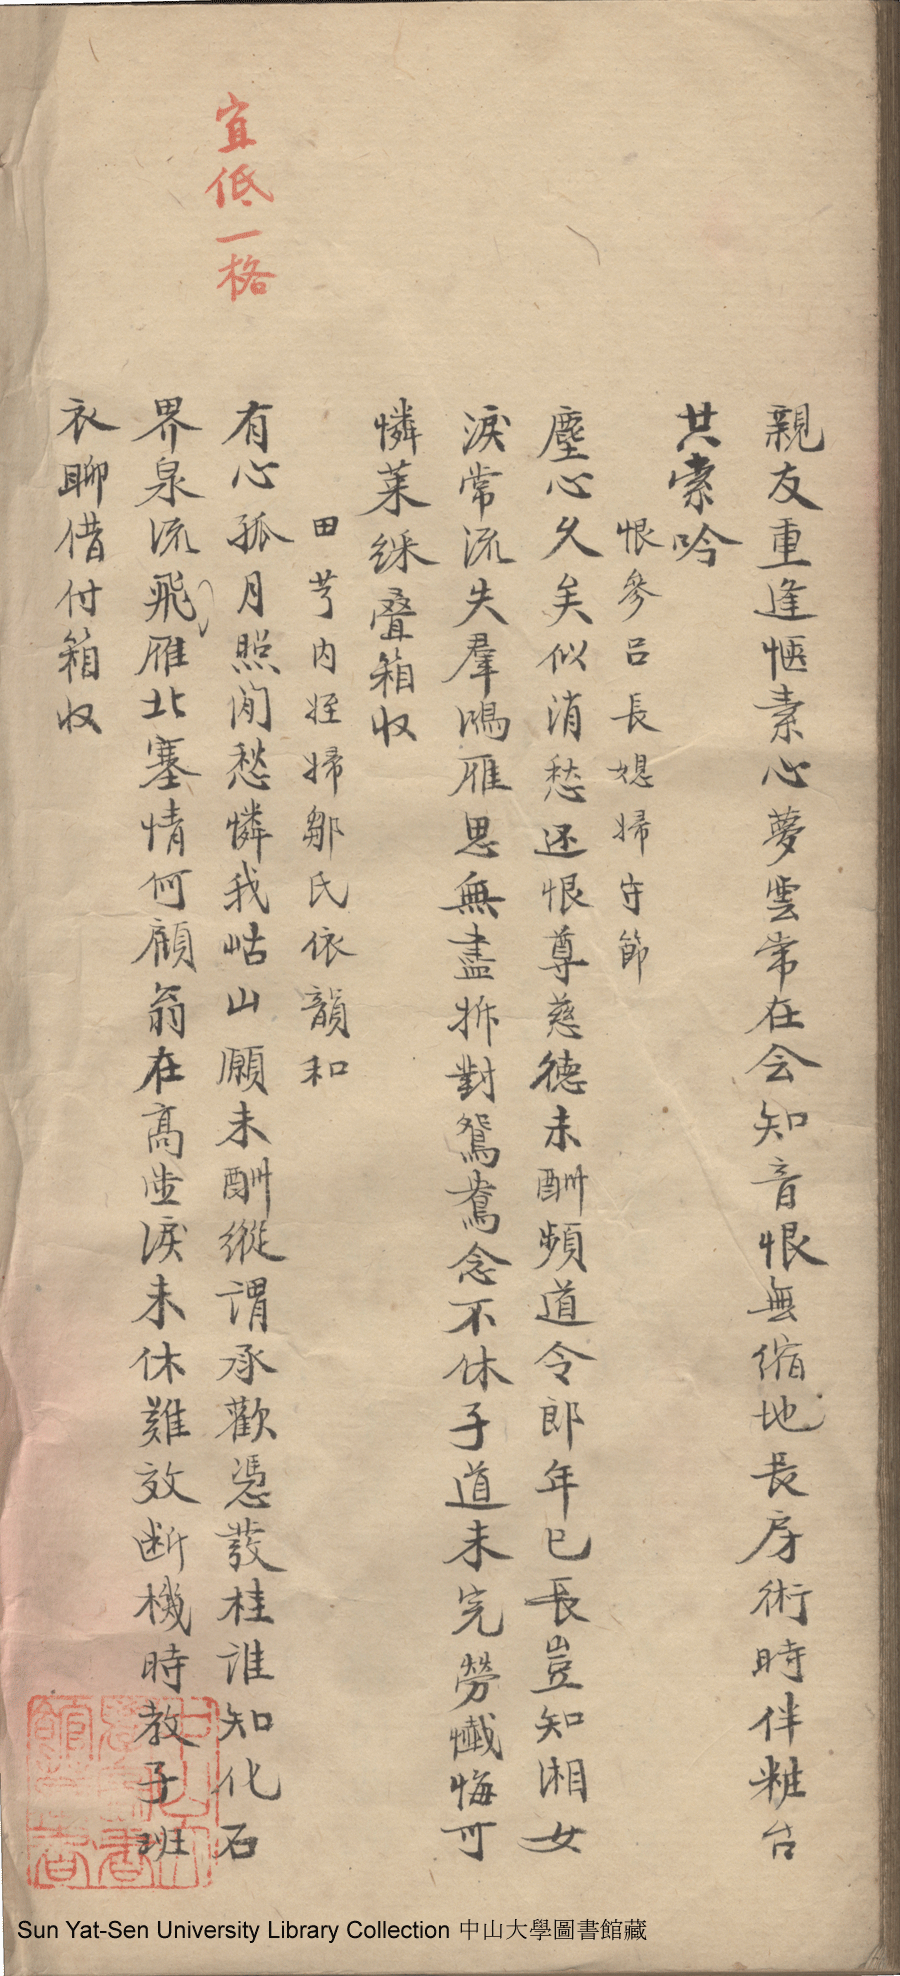 親友重逢愜素心夢雲常在会知音恨無縮地長房術時伴粧台
共索吟
恨參呂長媳婦守節
塵心久矣似消愁还恨尊慈德未酬頻道令郎年已長豈知湘女
淚常流失羣鴻雁思無盡拆對鴛鴦念不休子道未完勞懺悔可
憐莱綵疊箱收
田芎内姪婦鄒氏依韻和
宜低一格
有心孤月照閑愁憐我岵山願未酬縱謂承歡憑發桂誰知化石
界泉流飛雁北塞情何顧翁在高堂淚未休難效断機時教子班
衣聊借付箱收
中山大
書
館
Sun Yat-Sen University Library Collection 中山大學圖書館藏